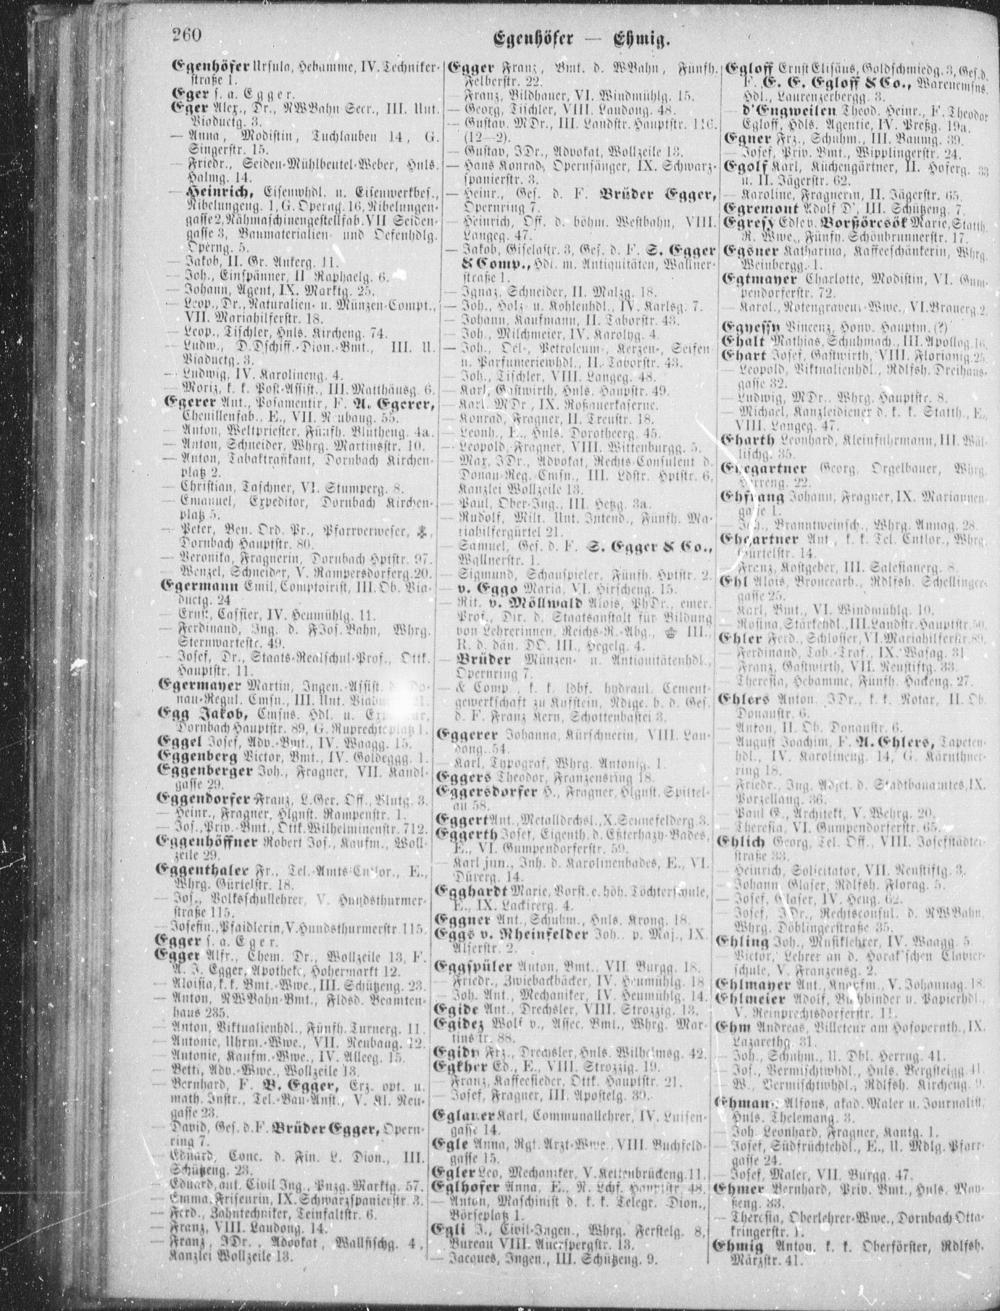 260
Egenhöfer — Ehmig.
Egenhöfer Ursula, Hebamme, IV. Techniker-
straße 1.
Eger s. a. Egger.
Eger Alex., Dr., NWBahn Secr., III. Unt.
Viaductg. 3.
— Anna, Modistin, Tuchlauben 14, G.
Singerstr. 15.
— Friedr., Seiden-Mühlbeutel-Weber, Hnls.
Halmg. 14.
— Heinrich, Eisenwhdl. u. Eisenwerkbes.,
Nibelungeng. 1, G. Operag. 16, Nibelungen-
gasse 2, Nähmaschinengestellfab. VII Seiden-
gasse 3, Baumaterialien- und Oefenhdlg.
Operng. 5.
— Jakob, II. Gr. Ankerg. 11.
— Joh., Einspänner, II Raphaelg. 6.
— Johann, Agent, IX. Marktg. 25.
— Leop., Dr., Naturalien- u. Münzen-Compt.,
VII. Mariahilferstr. 18.
— Leop., Tischler, Hnls. Kircheng. 74.
— Ludw., D. Dschiff.-Dion.-Bmt., III. U.
Viaductg. 3.
— Ludwig, IV. Karolineng. 4.
— Moriz, k. k. Post-Assist., III. Matthäusg. 6.
Egerer Ant., Posamentir, F. A. Egerer,
Chenillenfab., E., VII. Neubaug. 55.
— Anton, Weltpriester, Fünfh. Blütheng. 4a.
— Anton, Schneider, Whrg. Martinsstr. 10.
— Anton, Tabaktrafikant, Dornbach Kirchen-
platz 2.
— Christian, Taschner, VI. Stumperg. 8.
— Emanuel, Expeditor, Dornbach Kirchen-
platz 5.
— Peter, Ben. Ord. Pr., Pfarrverweser,
Dornbach Hauptstr. 80.
— Veronika, Fragnerin, Dornbach Hptstr. 97.
— Wenzel, Schneider, V. Rampersdorferg. 20.
Egermann Emil, Comptoirist, III. Ob. Via-
ductg. 24
— Ernst, Cassier, IV. Heumühlg. 11.
— Ferdinand, Ing. d. FJos. Bahn, Whrg.
Sternwartestr. 49.
— Josef, Dr., Staats-Realschul-Prof., Ottk.
Hauptstr. 11.
Egermayer Martin, Ingen.-Assist. d. Do-
nau-Regul. Cmsn., III. Unt. 21.
Egg Jakob, Cmsns. Hdl. u.
Dornbach Hauptstr. 89, G. Ruprechtsplatz 1.
Eggel Josef, Adv.-Bmt., IV. Waagg. 15.
Eggenberg Victor, Bmt., IV. Goldeggg. 1.
Eggenberger Joh., Fragner, VII. Kandl-
gasse 29.
Eggendorfer Franz, L.Ger. Off., Blutg. 3.
— Heinr., Fragner, Hlgnst. Rampenstr. 1.
— Jos., Priv.-Bmt., Ottk. Wilhelminenstr. 712.
Eggenhöffner Robert Jos., Kaufm., Woll-
zeile 29.
Eggenthaler Fr., Tel.-Amts-Cntlor., E.,
Whrg. Gürtelstr. 18.
— Jos., Volksschullehrer, V. Hundsthurmer-
straße 115.
— Josefin., Pfaidlerin, V. Hundsthurmerstr. 115.
Egger s. a. Eger.
Egger Alfr., Chem. Dr., Wollzeile 13, F.
A. J. Egger, Apotheke, Hohermarkt 12.
— Aloisia, k. k. Bmt.-Wwe., III. Schützeng. 23.
— Anton, NWBahn-Bmt., Fldsd. Beamten-
haus 235.
— Anton, Viktualienhdl., Fünfh. Turnerg. 11.
— Antonie, Uhrm.-Wwe., VII. Neubaug. 12.
— Antonie, Kaufm.-Wwe., IV. Alleeg. 15.
— Betti, Adv.-Wwe., Wollzeile 13.
— Bernhard, F. B. Egger, Erz. opt. u.
math. Instr., Tel.-Bau-Anst., V. Kl. Neu-
gasse 23.
— David, Ges. d. F. Brüder Egger, Opern-
ring 7.
— Eduard, Conc. d. Fin. L. Dion., III.
Schützeng. 23.
— Eduard, aut. Civil Ing., Pnzg. Marktg. 57.
— Emma, Friseurin, IX. Schwarzspanierstr. 3.
— Ferd., Zahntechniker, Teinfaltstr. 6.
— Franz, VIII. Laudong. 14.
— Franz, JDr., Advokat, Wallfischg. 4,
Kanzlei Wollzeile 13.
Egger Franz, Bmt. d. WBahn, Fünfh.
Felberstr. 22.
— Franz, Bildhauer, VI. Windmühlg. 15.
— Georg, Tischler, VIII. Laudong. 48.
— Gustav, MDr., III. Landstr. Hauptstr. 116.
(12—2).
— Gustav, JDr., Advokat, Wollzeile 13.
— Hans Konrad, Opernsänger, IX. Schwarz-
spanierstr. 3.
— Heinr., Ges. d. F. Brüder Egger,
Opernring 7.
— Heinrich, Off. d. böhm. Westbahn, VIII.
Langeg. 47.
— Jakob, Giselastr. 3, Ges. d. F. S. Egger
& Comp., Hdl. m. Antiquitäten, Wallner-
straße 1.
— Ignaz, Schneider, II. Malzg. 18.
— Joh., Holz- u. Kohlenhdl., IV. Karlsg. 7.
— Johann, Kaufmann, II. Taborstr. 43.
— Joh., Milchmeier, IV. Karolyg. 4.
— Joh., Oel-, Petroleum-, Kerzen-, Seifen
u. Parfumeriewhdl., II. Taborstr. 43.
— Joh., Tischler, VIII. Langeg. 48.
— Karl, Gastwirth, Hnls. Hauptstr. 49.
— Karl, MDr., IX. Roßauerkaserne.
— Konrad, Fragner, II. Treustr. 18.
— Leonh., E., Hnls. Dorotheerg. 45.
— Leopold, Fragner, VIII. Wittenburgg. 5.
— Max, JDr., Advokat, Rechts-Consulent d.
Donau-Reg. Cmsn., III. Ldstr. Hptstr. 6.
Kanzlei Wollzeile 13.
— Paul, Ober-Ing., III. Hetzg. 3a.
— Rudolf, Milt. Unt. Intend., Fünfh. Ma-
riahilfergürtel 21.
— Samuel, Ges. d. F. S. Egger & Co.,
Wallnerstr. 1.
— Sigmund, Schauspieler, Fünfh. Hptstr. 2.
v. Eggo Maria, VI. Hirscheng. 15.
— Rit. v. Möllwald Alois, PhDr., emer.
Prof., Dir. d. Staatsanstalt für Bildung
von Lehrerinnen, Reichs-R.-Abg., III.,
R. d. dän. DO. III., Hegelg. 4.
— Brüder Münzen- u. Antiquitätenhdl.,
Opernring 7.
— & Comp., k. k. ldbf. hydraul. Cement-
gewerkschaft zu Kufstein, Ndlge. b. d. Ges.
d. F. Franz Kern, Schottenbastei 3.
Eggerer Johanna, Kürschnerin, VIII. Lau-
dong. 54.
— Karl, Typograf, Whrg. Antonig. 1.
Eggers Theodor, Franzensring 18.
Eggersdorfer H., Fragner, Hlgnst. Spittel-
au 58.
Eggert Ant., Metalldrchsl., X. Sennefelderg. 3.
Eggerth Josef, Eigenth. d. Esterhazy-Bades,
E., VI. Gumpendorferstr. 59.
— Karl jun., Inh. d. Karolinenbades, E., VI.
Dürerg. 14.
Egghardt Marie, Vorst. e. höh. Töchterschule,
E., IX. Lackirerg. 4.
Eggner Ant., Schuhm., Hnls. Krong. 18.
Eggs v. Rheinfelder Joh., p. Maj., IX.
Alserstr. 2.
Eggspüler Anton, Bmt., VII. Burgg. 18.
— Friedr., Zwiebackbäcker, IV. Heumühlg. 18
— Joh. Ant., Mechaniker, IV. Heumühlg. 14.
Egide Ant., Drechsler, VIII. Strozzig. 13.
Egidez Wolf v., Assec. Bmt., Whrg. Mar-
tinsstr. 88.
Egidy Frz., Drechsler, Hnls. Wilhelmsg. 42.
Egkher Ed., E., VIII. Strozzig. 19.
— Franz, Kaffeesieder, Ottk. Hauptstr. 21.
— Josef, Fragner, III. Apostelg. 30.
Eglauer Karl, Communallehrer, IV. Luisen-
gasse 14.
Egle Anna, Rgt. Arzt-Wwe., VIII. Buchfeld-
gasse 15.
Egler Leo, Mechaniker, V. Kettenbrückeng. 11.
Eglhofer Anna, E., N. Lchf. Hauptstr. 48.
— Anton, Maschinist d. k. k. Telegr. Dion.,
Börseplatz 1.
Egli J., Civil-Ingen., Whrg. Ferstelg. 8,
Bureau VIII. Auerspergstr. 13.
— Jacques, Ingen., III. Schützeng. 9.
Egloff Ernst Elisäus, Goldschmiedg. 3, Ges. d.
F. E. E. Egloff & Co., Warencmsns.
Hdl., Laurenzerbergg. 3.
— d'Engweilen Theod. Heinr., F. Theodor
Egloff, Hdls. Agentie, IV. Preßg. 19a.
Egner Frz., Schuhm., III. Baumg. 39.
— Josef, Priv. Bmt., Wipplingerstr. 24.
Egolf Karl, Küchengärtner, II. Hoferg. 33
u. II. Jägerstr. 62.
— Karoline, Fragnerin, II. Jägerstr. 65.
Egremont Adolf D', III. Schützeng. 7.
Egresy Edle v. Borßörcsök Marie, Statth.
R. Wwe., Fünfh. Schönbrunnerstr. 17.
Egsner Katharina, Kaffeeschänkerin, Whrg.
Weinbergg. 1.
Egtmayer Charlotte, Modistin, VI. Gum-
pendorferstr. 72.
— Karol., Rotengraveu.-Wwe., VI. Brauerg. 2.
Egyessy Vincenz, Honv. Hauptm. (?)
Ehalt Mathias, Schuhmach., III. Apollog. 16.
Ehart Josef, Gastwirth, VIII. Florianig. 25.
— Leopold, Viktualienhdl., Rdlfsh. Dreihaus-
gasse 32.
— Ludwig, MDr., Whrg. Hauptstr. 8.
— Michael, Kanzleidiener d. k. k. Statth., E.,
VIII. Langeg. 47.
Eharth Leonhard, Kleinfuhrmann, III. Wäl-
lischg. 35.
Ehegartner Georg, Orgelbauer, Whrg.
Herreng. 22.
Ehfrang Johann, Fragner, IX. Mariannen-
gasse 1.
— Joh., Branntweinsch., Whrg. Annag. 28.
Ehgartner Ant., k. k. Tel. Cntlor., Whrg.
Gürtelstr. 14.
— Frenz, Kostgeber, III. Salesianerg. 8.
Ehl Alois, Broncearb., Rdlfsh. Schellinger-
gasse 25.
— Karl, Bmt., VI. Windmühlg. 10.
— Rosina, Stärkehdl., III. Landstr. Hauptstr. 50.
Ehler Ferd., Schlosser, VI. Mariahilferstr. 89.
— Ferdinand, Tab.-Traf., IX. Wasag. 31.
— Franz, Gastwirth, VII. Neustiftg. 33.
— Theresia, Hebamme, Fünfh. Hackeng. 27.
Ehlers Anton, JDr., k. k. Notar, II. Ob.
Donaustr. 6.
— Anton, II. Ob. Donaustr. 6.
— August Joachim, F. A. Ehlers, Tapeten-
hdl., IV. Karolineng. 14, G. Kärnthner-
ring 18.
— Friedr., Ing. Adjct. d. Stadtbauamtes, IX.
Porzellang. 36.
— Paul G., Architekt, V. Wehrg. 20.
— Theresia, VI. Gumpendorferstr. 65.
Ehlich Georg, Tel. Off., VIII. Josefstädter-
straße 33.
— Heinrich, Solicitator, VII. Neustiftg. 3.
— Johann, Glaser, Rdlfsh. Florag. 5.
— Josef, Glaser, IV. Heug. 62.
— Josef, JDr., Rechtsconsul. d. NWBahn,
Whrg. Döblingerstraße 35.
Ehling Joh., Musiklehrer, IV. Waagg. 5.
— Victor, Lehrer an d. Horak'schen Clavier-
schule, V. Franzensg. 2.
Ehlmayer Ant., Knopfm., V. Johannag. 18.
Ehlmeier Adolf, Buchbinder u. Papierhdl.,
V. Reinprechtsdorferstr. 11.
Ehm Andreas, Billeteur am Hofoperнth., IX.
Lazarethg. 31.
— Joh., Schuhm., U. Dbl. Herrng. 41.
— Jos., Vermischtwhdl., Hnls. Bergsteigg. 41.
— W., Vermischtwhdl., Rdlfsh. Kircheng. 9.
Ehmann Alfons, akad. Maler u. Journalist,
Hnls. Thelemang. 3.
— Joh. Leonhard, Fragner, Kantg. 1.
— Josef, Südfrüchtehdl., E., U. Mdlg. Pfarr-
gasse 24.
— Josef, Maler, VII. Burgg. 47.
Ehmer Bernhard, Priv. Bmt., Hnls. May-
ßeng. 33.
— Theresia, Oberlehrer-Wwe., Dornbach Otta-
kringerstr. 1.
Ehmig Anton, k. k. Oberförster, Rdlfsh.
Märzstr. 41.